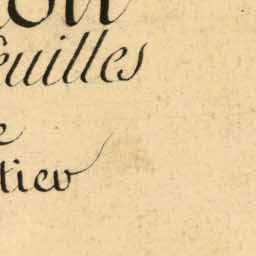 euilles
e
tier